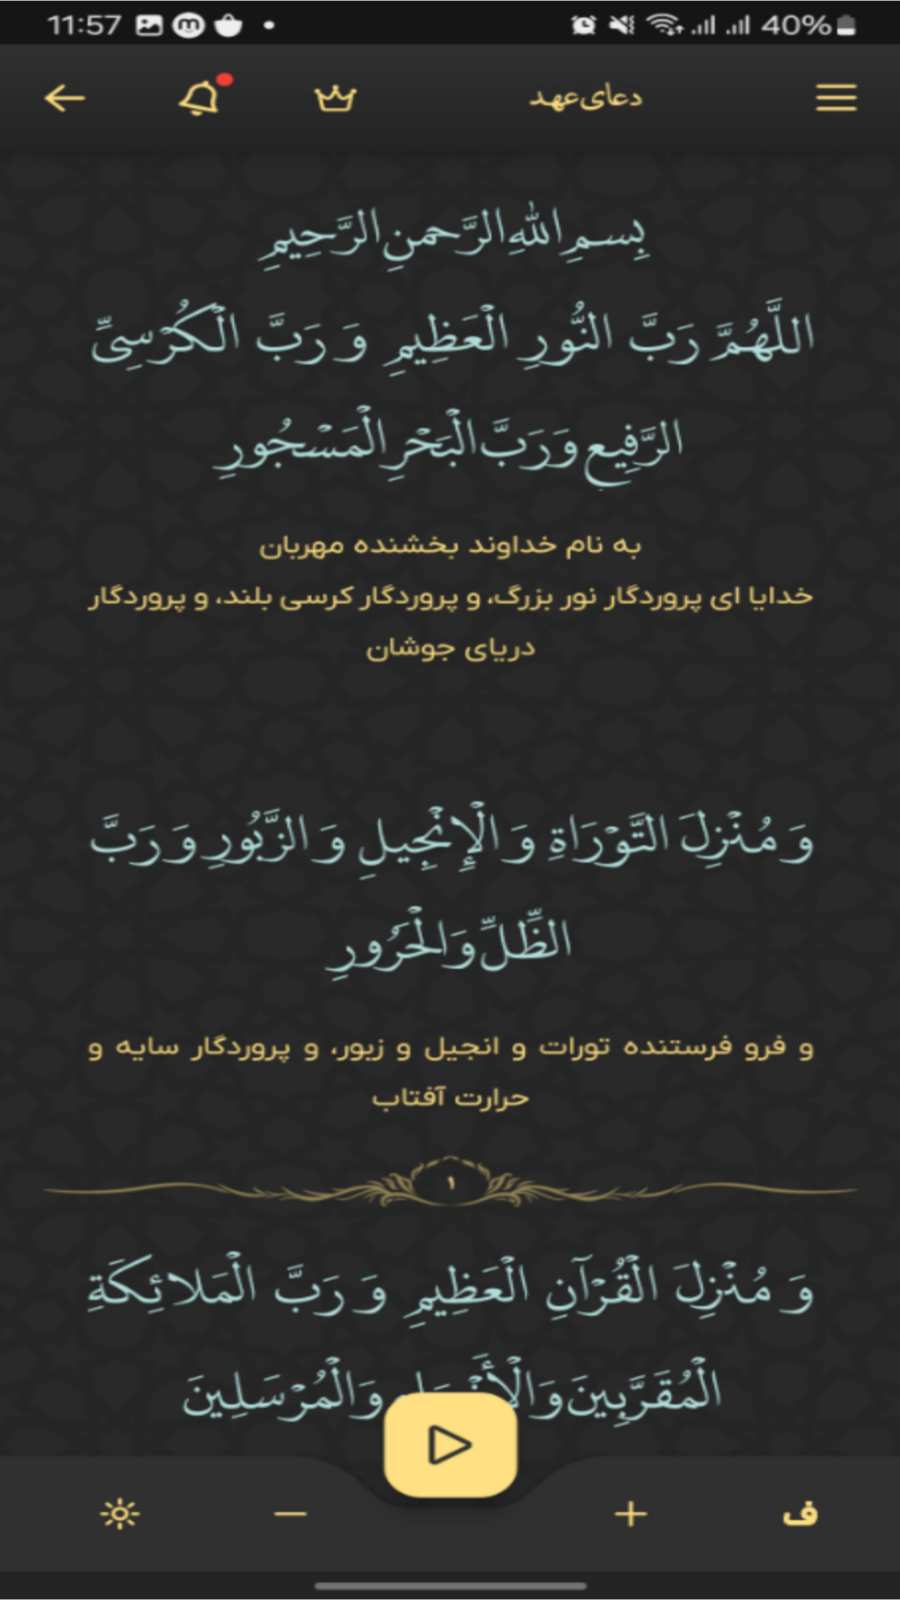 11:57
40%
دعای عهد
بِسمِ اللهِ الرَّحمنِ الرَّحِيمِ
اللَّهُمَّ رَبَّ النُّورِ الْعَظِيمِ وَ رَبَّ الْكُرْسِيِّ
الرَّفِيعِ وَ رَبَّ الْبَحْرِ الْمَسْجُورِ
به نام خداوند بخشنده مهربان
خدایا ای پروردگار نور بزرگ، و پروردگار کرسی بلند، و پروردگار
دریای جوشان
وَ مُنْزِلَ التَّوْرَاةِ وَ الْإِنْجِيلِ وَ الزَّبُورِ وَ رَبَّ
الظِّلِّ وَ الْحَرُورِ
و فرو فرستنده تورات و انجیل و زبور، و پروردگار سایه و
حرارت آفتاب
۱
وَ مُنْزِلَ الْقُرْآنِ الْعَظِيمِ وَ رَبَّ الْمَلائِكَةِ
الْمُقَرَّبِينَ وَ وَ الْمُرْسَلِينَ
ف